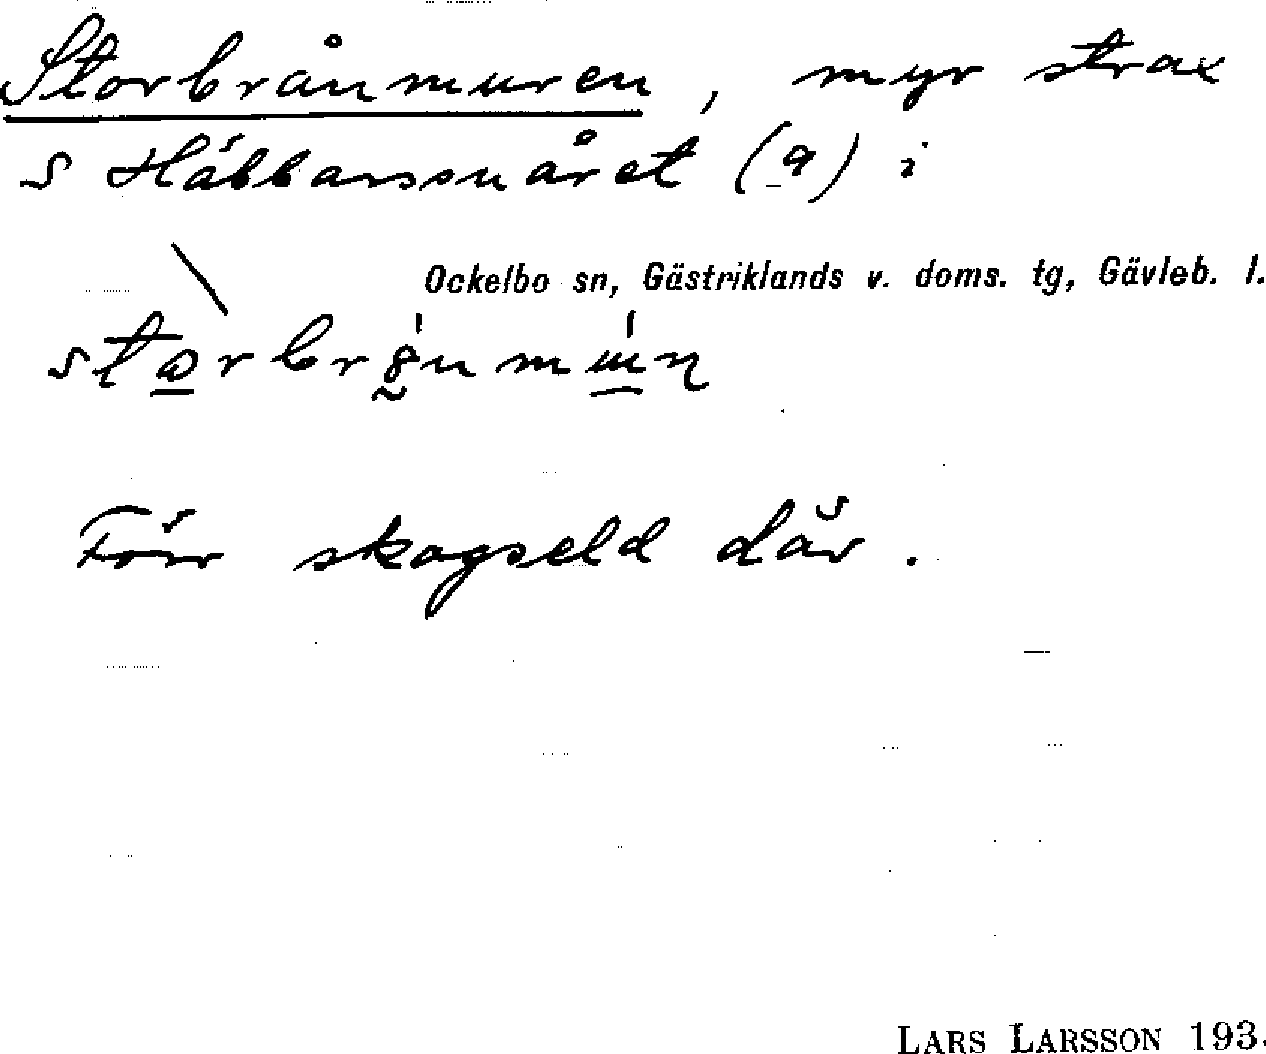 Storbrånmuren, myr strax
s Häbbarssnåret (a) i
Ockelbo sn, Gästriklands v. doms. tg, Gävleb. l.
Förr skogseld där.
LARS LARSSON 193.